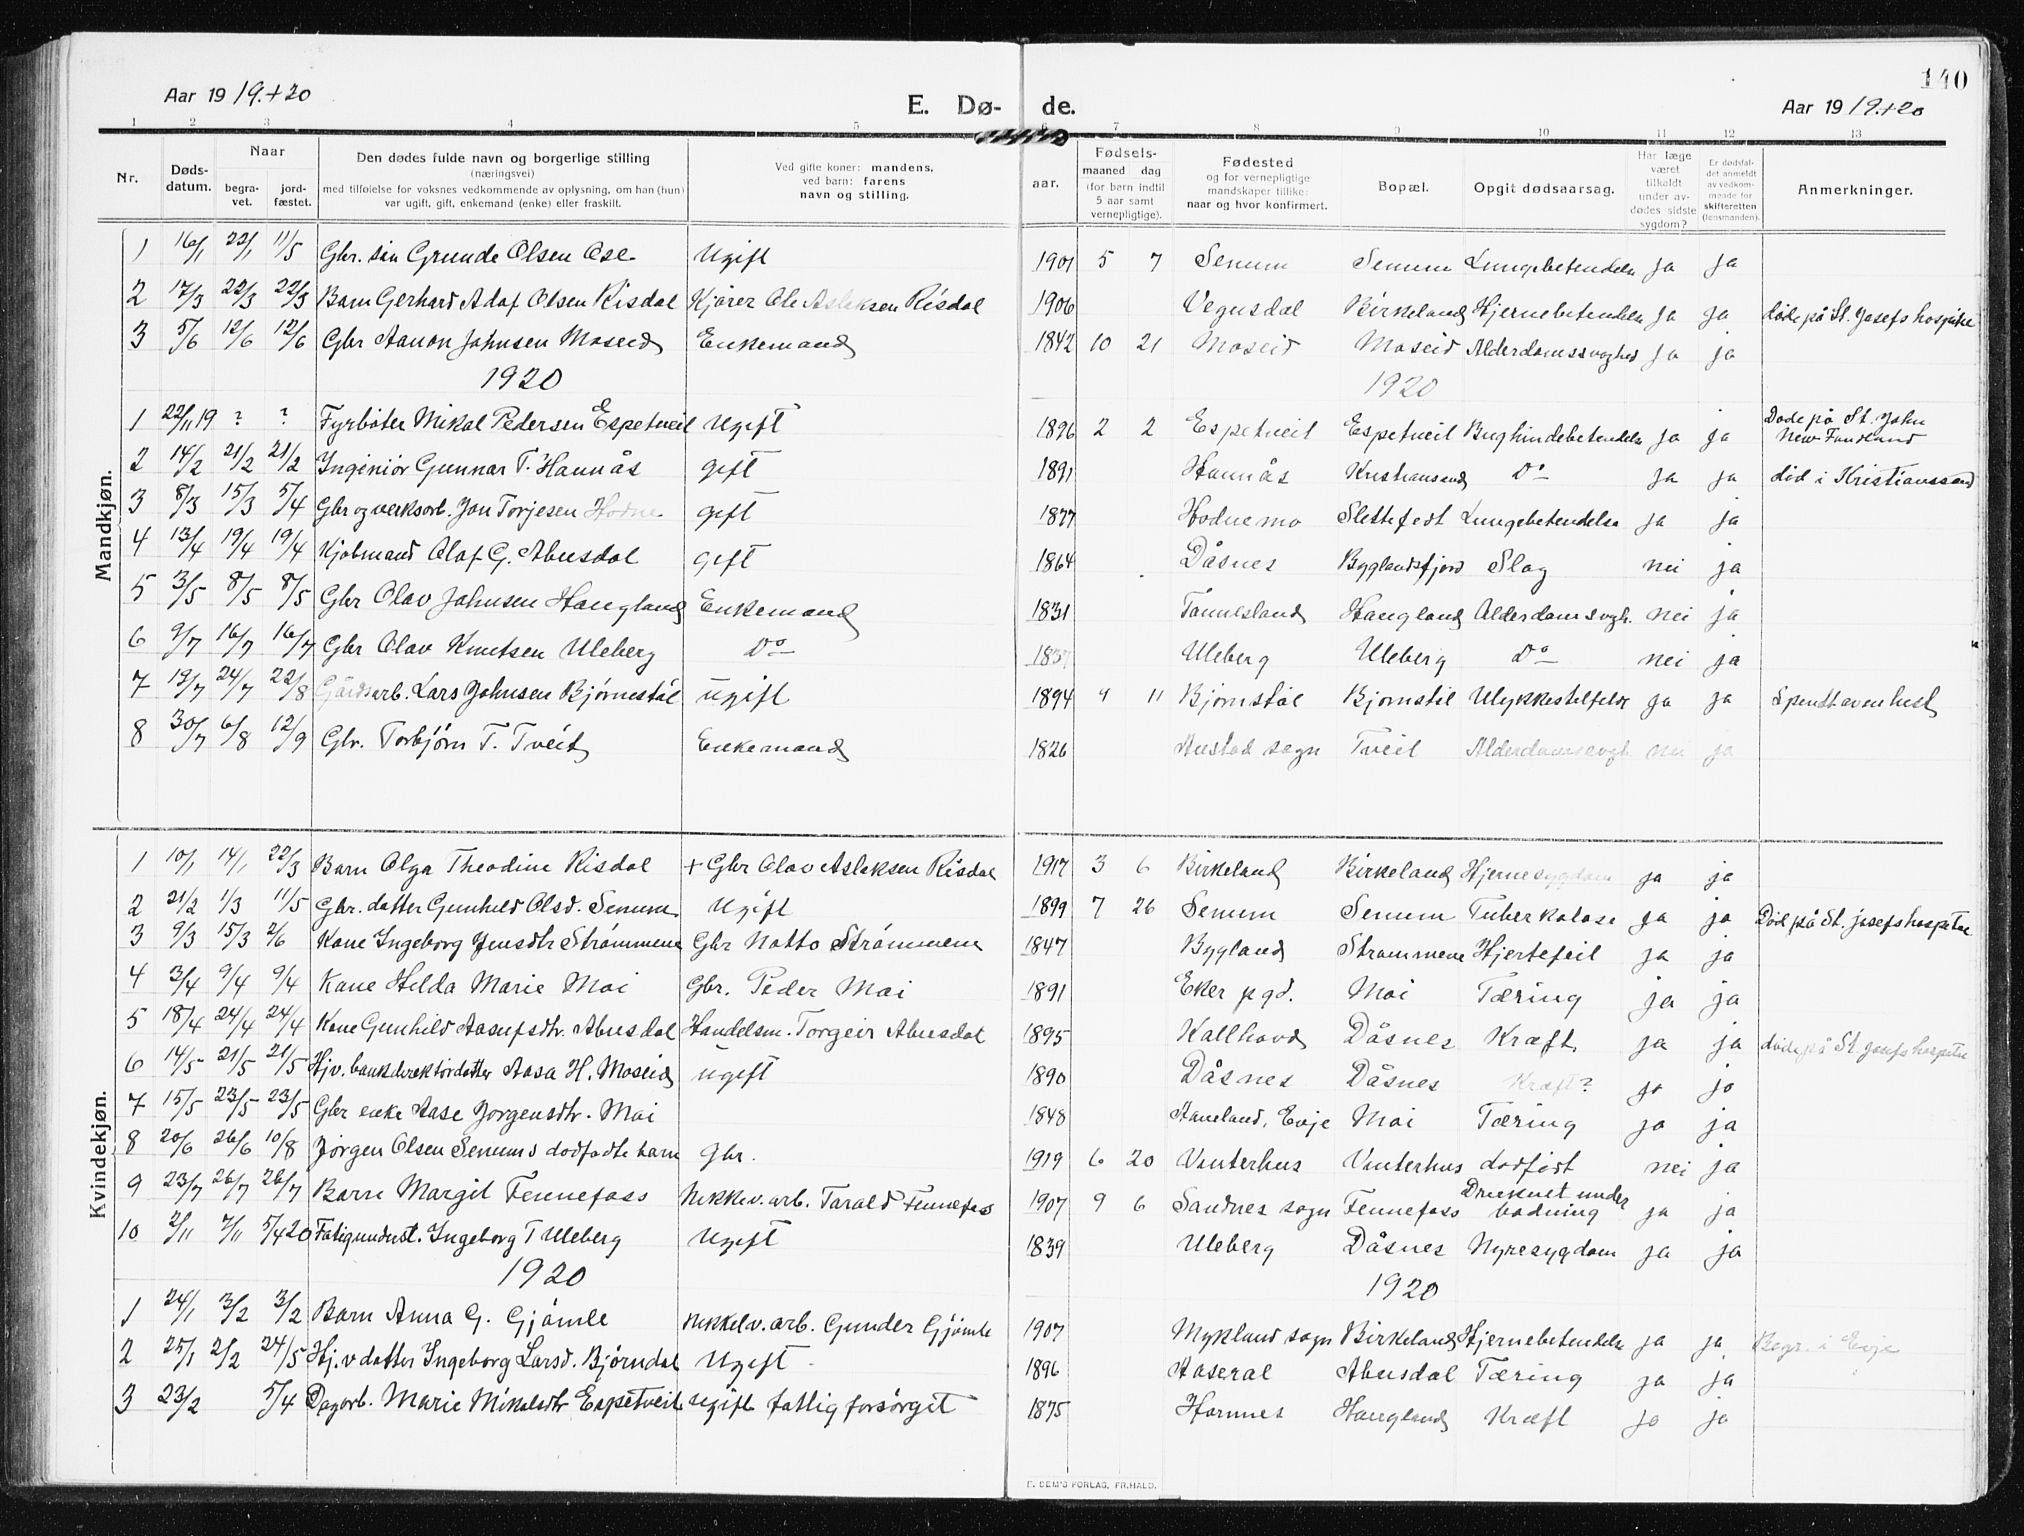 140
Aar 19 19.+20 E. Dø- de. Aar 19 19.+20
1 2 3 4 5 6 7 8 9 10 11 12 13
Nr. Døds-datum. Naar begra-vet. jord-fæstet. Den dødes fulde navn og borgerlige stilling (næringsvei) med tilføielse for voksnes vedkommende av oplysning, om han (hun) var ugift, gift, enkemand (enke) eller fraskilt. Ved gifte koner: mandens, ved barn: farens navn og stilling. Fødsels- aar. maaned dag (for barn indtil 5 aar samt vernepligtige). Fødested og for vernepligtige mandskaper tillike: naar og hvor konfirmert. Bopæl. Opgit dødsaarsag. Har læge været tilkaldt under av-dødes sidste sygdom? Er dødsfal-det anmeldt av vedkom-mende for skifteretten (lensmanden). Anmerkninger.
Mandkjøn.
1 16/1 22/1 11/5 Gbr. søn Grunde Olsen Ose Ugift 1901 5 7 Senum Senum Lungebetendelse ja ja
2 17/3 22/3 22/3 Barn Gerhard Adof Olsen Risdal Kjører Ole Aslaksen Risdal 1906 Vegusdal Birkeland Hjernebetendelse ja ja døde på St. Josefs hospital
3 5/6 12/6 12/6 Gbr Aanon Johnsen Moseid Enkemand 1842 10 21 Moseid Moseid Alderdomssvaghed ja ja
1920 1920
1 22/11 19 ? ? Fyrbøter Mikal Pedersen Espetveit Ugift 1896 2 2 Espetveit Espetveit Bughindebetendelse ja ja Døde på St. John New Fundland
2 14/2 21/2 21/2 Ingeniør Gunnar T. Hannås gift 1891 Hannås Kristiansand Do ja ja død i Kristianssand
3 8/3 15/3 5/4 Gbr og verksarb. Jon Torjesen Hodne gift 1877 Hodnemo Slettefedt Lungebetendelse ja ja
4 13/4 19/4 19/4 Kjøbmand Olaf G. Abusdal gift 1864 Dåsnes Byglandsfjord Slag nei ja
5 3/5 8/5 8/5 Gbr Olav Johnsen Haugland Enkemand 1831 Tonnesland Haugland Alderdomsvgh. nei ja
6 9/7 16/7 16/7 Gbr Olav Knutsen Uleberg Do 1837 Uleberg Uleberg Do nei ja
7 19/7 24/7 22/8 Gårdsarb. Lars Johnsen Bjørnestøl ugift 1894 4 11 Bjørnstøl Bjørnstøl Ulykkestilfelde ja ja Spendt av en hest
8 30/7 6/8 12/9 Gbr. Torbjørn T. Tveit Enkemand 1826 Austad sogn Tveit Alderdomssvgh nei ja
Kvindekjøn.
1 10/1 14/1 22/3 Barn Olga Theodine Risdal + Gbr Olav Aslaksen Risdal 1917 3 6 Birkeland Birkeland Hjernesygdom ja ja
2 21/2 1/3 11/5 Gbr. datter Gunhild Olsd. Senum Ugift 1899 7 26 Senum Senum Tuberkolose ja ja Død på St. josefs hospital
3 9/3 15/3 2/6 Kone Ingeborg Jensdtr Strømmene Gbr Notto Strømmene 1847 Bygland Strømmene Hjertefeil ja ja
4 3/4 9/4 9/4 Kone Helda Marie Moi Gbr. Peder Moi 1891 Eker pgd. Moi Tæring ja ja
5 18/4 24/4 24/4 Kone Gunhild Aasufsdtr. Abusdal Handelsm. Torgeir Abusdal 1895 Kallhovd Dåsnes Kræft ja ja døde på St. Josefs hospital
6 14/5 21/5 21/5 Hjv. bankdirektørdatter Aasa H. Moseid ugift 1890 Dåsnes Dåsnes Kræft? ja ja
7 15/5 23/5 23/5 Gbr enke Aase Jorgensdtr. Moi 1848 Haneland, Evje Moi Tæring ja ja
8 20/6 26/6 10/8 Jørgen Olsen Senums dødfødte barn Gbr. 1919 6 20 Vinterhus Vinterhus dødfødt nei ja
9 23/7 26/7 26/7 Barn Margit Fennefoss Nikkelv. arb. Tarald Fennefoss 1907 9 6 Sandnes sogn Fennefoss Druknet under badning ja ja
10 2/11 7/11 5/4 20 Fatigunderst. Ingeborg T Uleberg Ugift 1839 Uleberg Dåsnes Nyresygdom ja ja
1920 1920
1 24/1 3/2 3/2 Barn Anna G. Gjømle Nikkelv. arb. Gunder Gjømle 1907 Mykland sogn Birkeland Hjernebetendelse ja ja Begr. i Evje
2 25/1 2/2 24/5 Hj. v datter Ingeborg Larsd. Bjørndal Ugift 1896 Aaseral Abusdal Tæring ja ja
3 23/2 5/4 Dagarb. Marie Mikalsdtr Espetveit ugift fattigforsørget 1875 Hornnes Haugland Kræft ja ja
E. SEM'S FORLAG, FR.HALD.